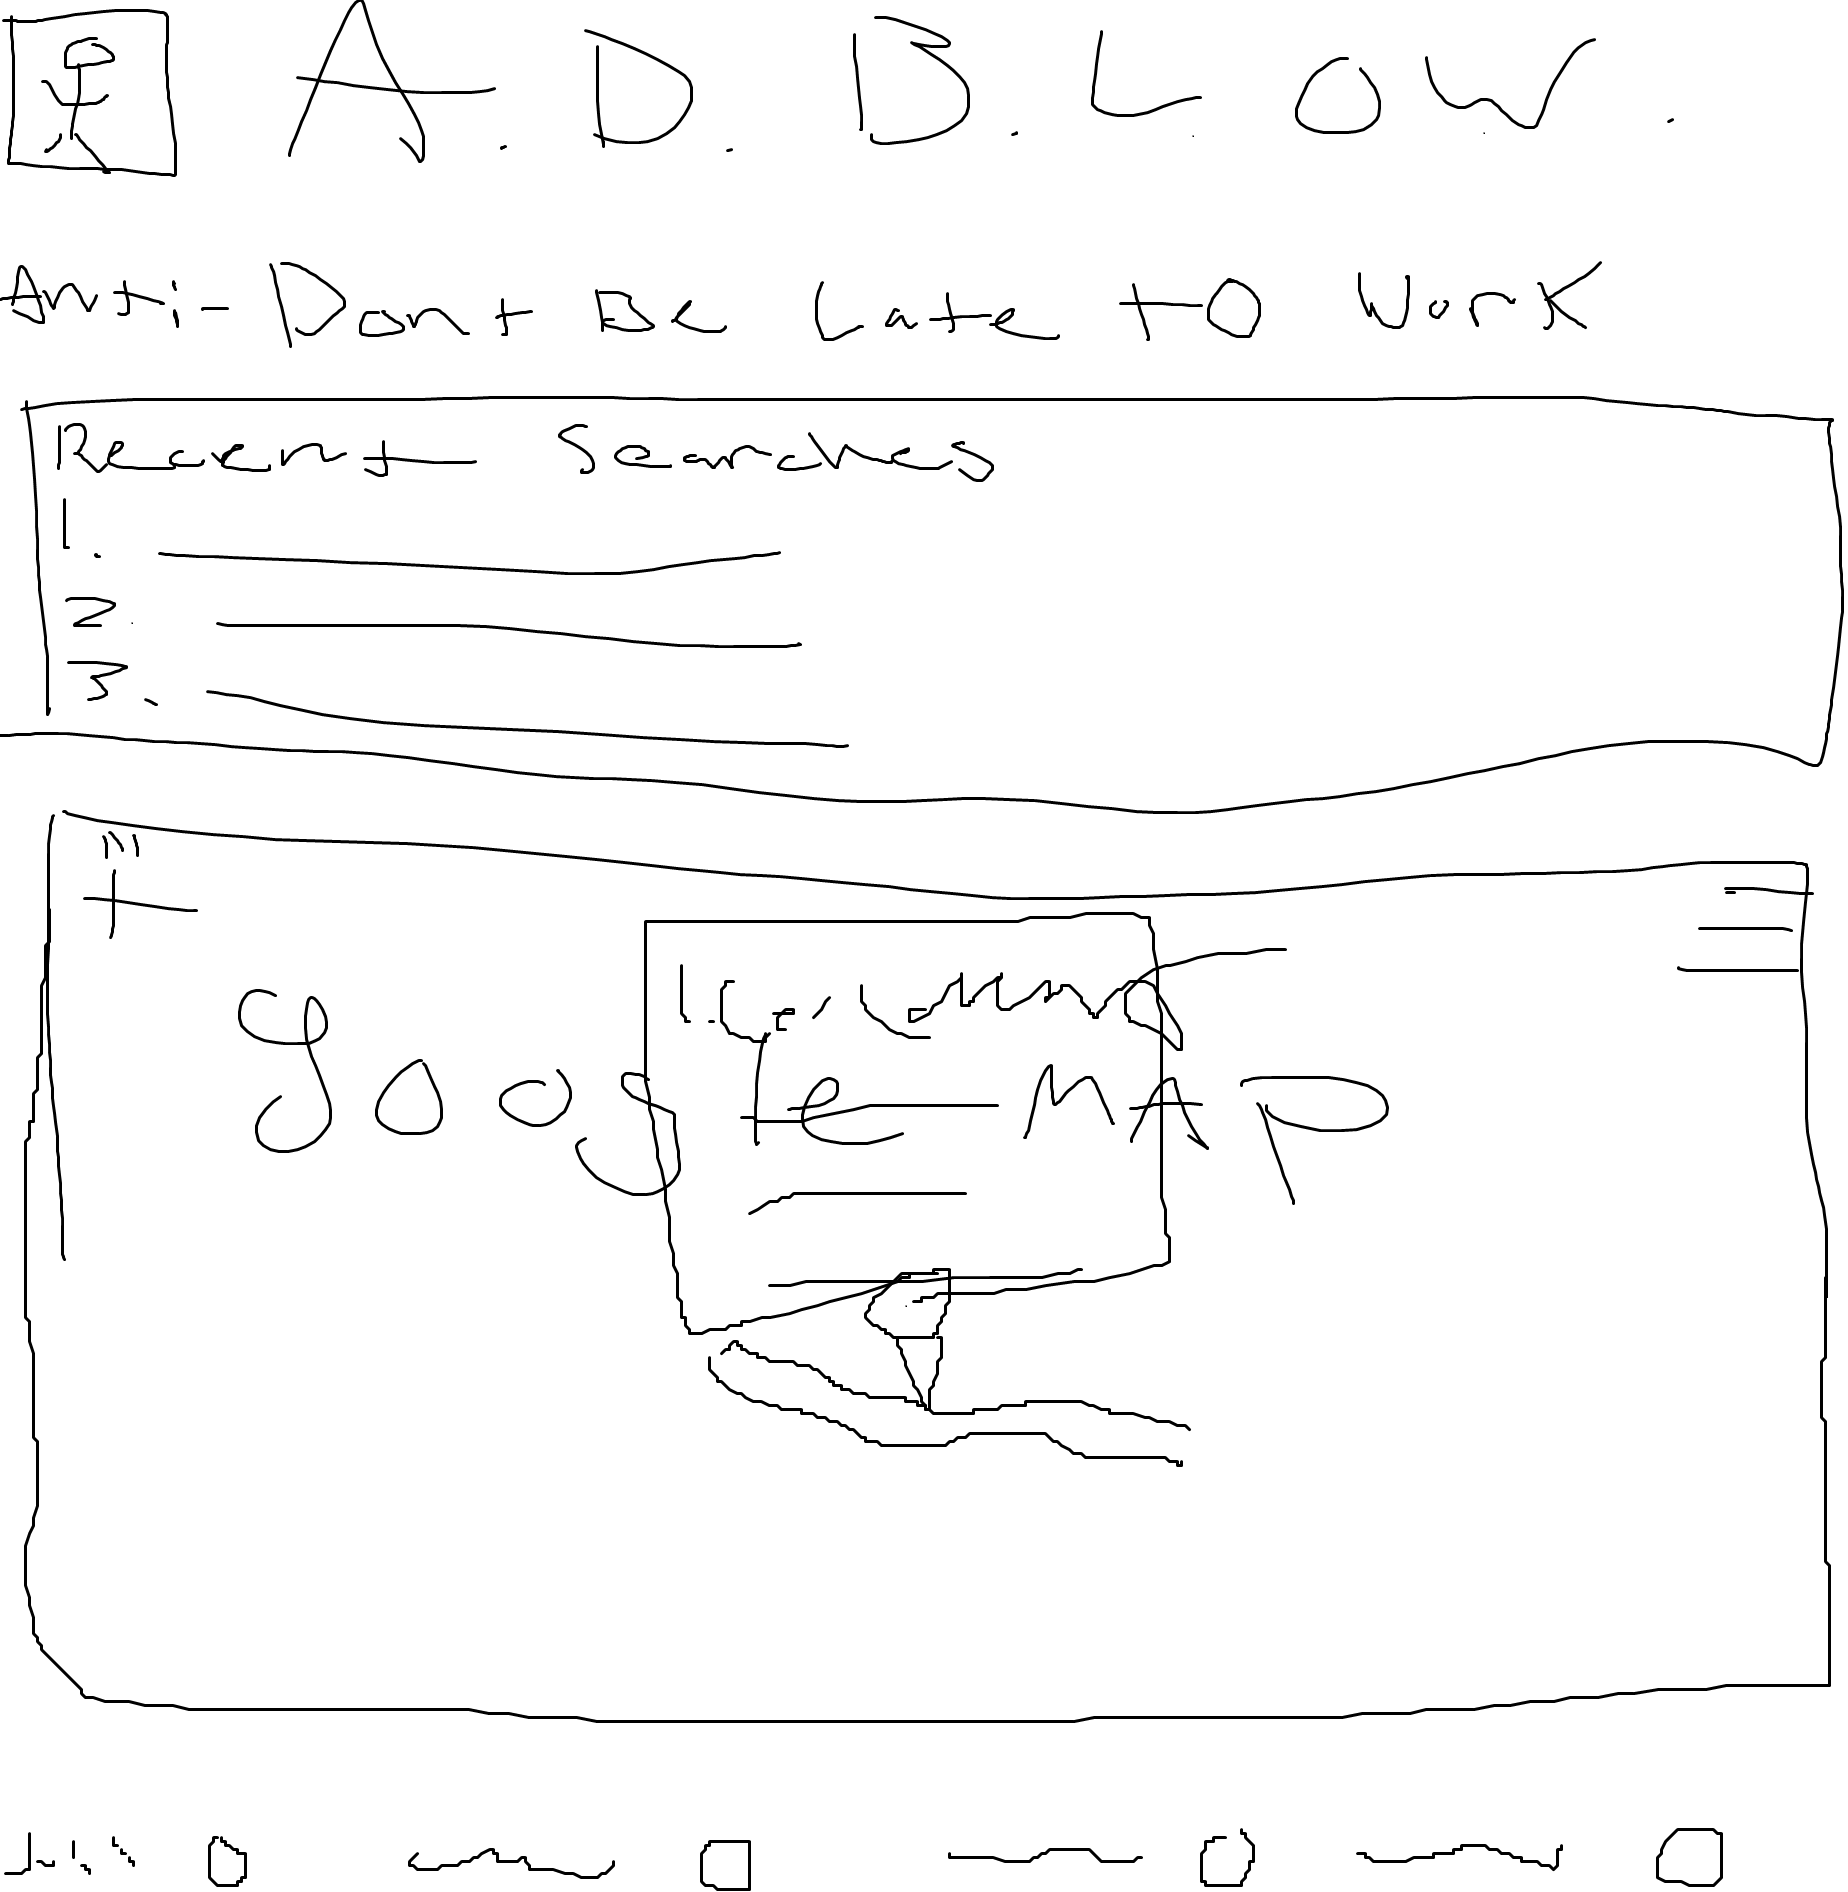 A.D.B.LOW.
Anti-Dont Be Late to Work
Recent Searches
1.
2.
3.
Google MAP
1.